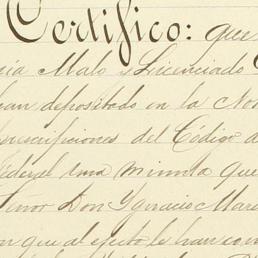 Certifico: que
Malo y Licenciado
han depositado en la No
prescripciones del Código a
una minuta que
Tenor Don Ygnacio Mar
on que al efecto le han con